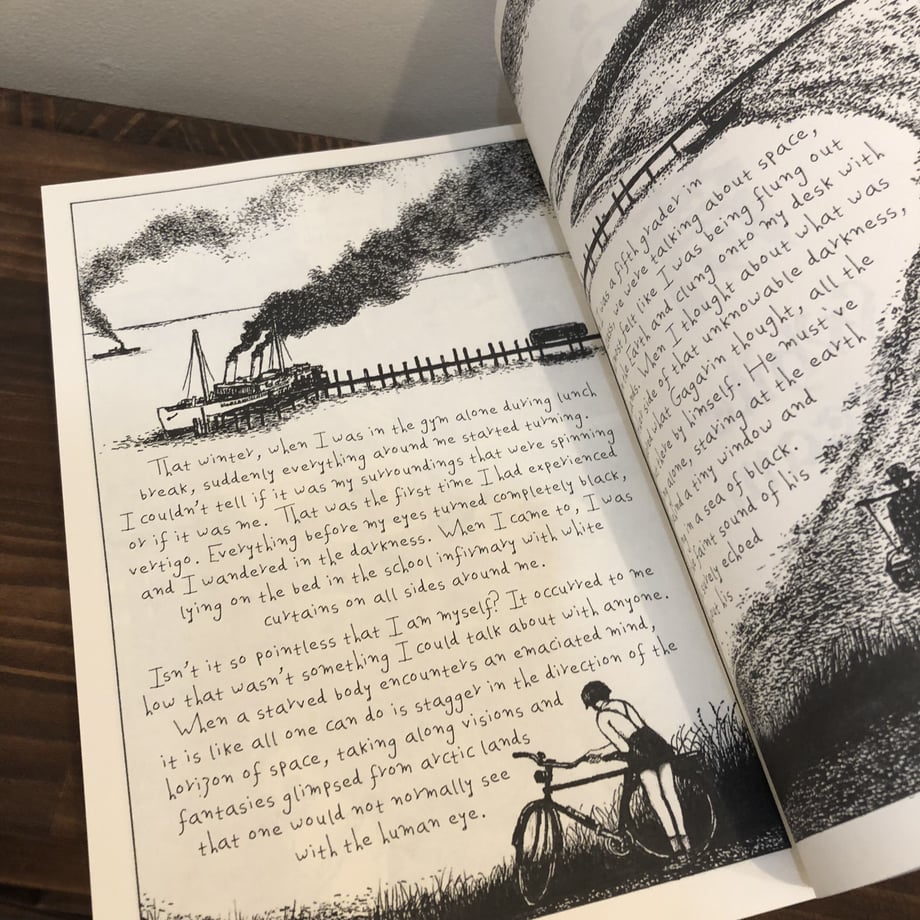 That winter, when I was in the gym alone during lunch
break, suddenly everything around me started turning.
I couldn't tell if it was my surroundings that were spinning
or if it was me. That was the first time I had experienced
vertigo. Everything before my eyes turned completely black,
and I wandered in the darkness. When I came to, I was
lying on the bed in the school infirmary with white
curtains on all sides around me.
Isn't it so pointless that I am myself? It occurred to me
how that wasn't something I could talk about with anyone.
When a starved body encounters an emaciated mind,
it is like all one can do is stagger in the direction of the
horizon of space, taking along visions and
fantasies glimpsed from arctic lands
that one would not normally see
with the human eye.
was a fifth grader in
we were talking about space,
felt like I was being flung out
Earth and clung onto my desk with
When I thought about what was
side of that unknowable darkness,
what Gagarin thought, all the
there by himself. He must've
alone, staring at the earth
a tiny window and
in a sea of black.
faint sound of his
echoed
his